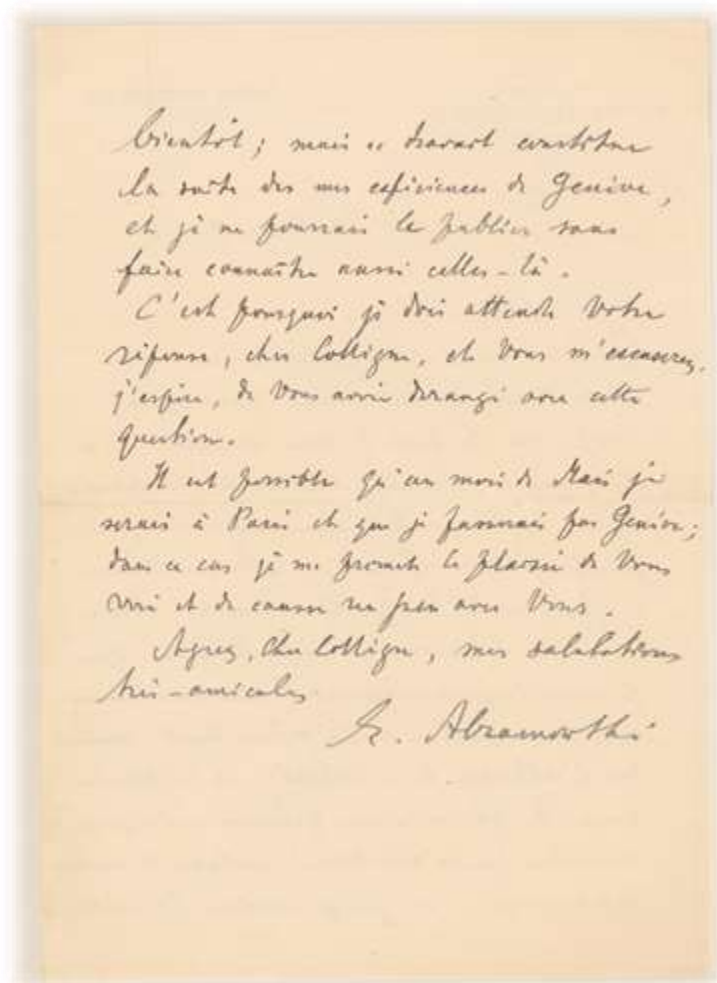 bientôt; mais ce travail constitue
la suite des mes expériences de Genève,
et je ne pourrais le publier sans
faire connaître aussi celles-là.
C'est pourquoi je dois attendre Votre
réponse, cher Collègue, et Vous m'excuserez,
j'espère, de Vous avoir dérangé avec cette
question.
Il est possible qu'au mois de Mai je
serais à Paris et que je passerais par Genève;
dans ce cas je me promets le plaisir de Vous
voir et de causer un peu avec Vous.
Agréez, cher Collègue, mes salutations
très-amicales
E. Abramowski